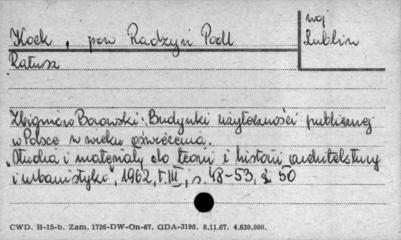 Kock, pow Radzyń Podl
woj
Lublin
Ratusz
Zbigniew Borowski: Budynki użyteczności publicznej
w Polsce w wieku oświecenia.
„Studia i materiały do teorii i historii architektury
i urbanistyki", 1962, T. III, s. 48-53, § 50
CWD. H-15-b. Zam. 1726-DW-On-67. GDA-3198. 8.11.67. 4.630.000.